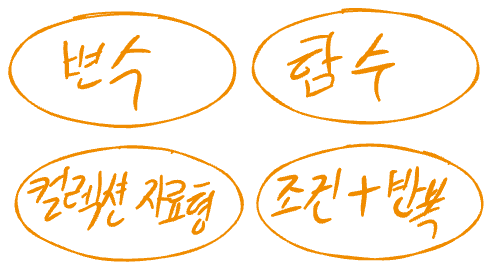 변수
함수
컬렉션 자료형
조건 + 반복